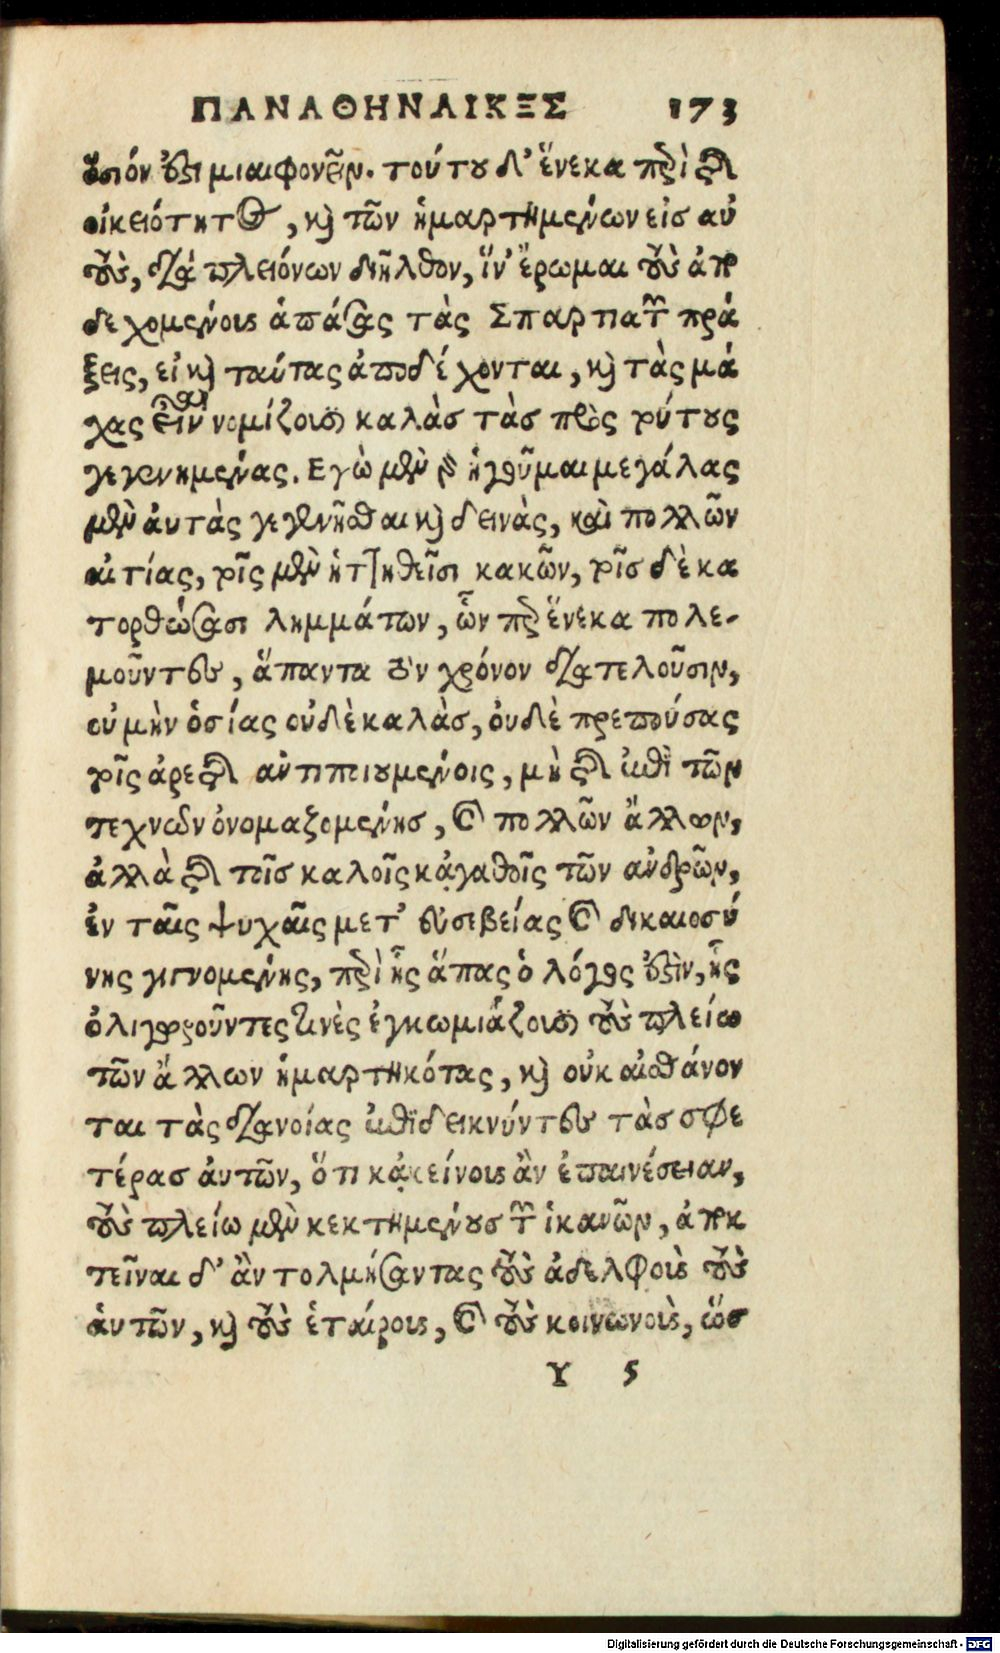 ΠΑΝΑΘΗΝΑΙΚΟΣ 173
ὅσιόν ἐστι μιαιφονεῖν. τούτου δ' ἕνεκα περὶ τῆς
οἰκειότητος, καὶ τῶν ἡμαρτημένων εἰσ αὐ
τοὺς, διὰ πλειόνων διῆλθον, ἵν' ἔρωμαι τοὺς ἀπο
δεχομένους ἁπάσας τὰς Σπαρτιατῶν πρά
ξεις, εἰ καὶ ταύτας ἀποδέχονται, καὶ τὰς μά
χας εἶναι νομίζουσι καλὰσ τὰσ πρὸς τούτους
γεγενημένας. Εγὼ μὲν γὰρ ἡγοῦμαι μεγάλας
μὲν ἀυτὰς γεγενῆσθαι καὶ δεινὰς, καὶ πολλῶν
αἰτίας, τοῖς μὲν ἡττηθεῖσι κακῶν, τοῖσ δὲ κα
τορθώσασι λημμάτων, ὧν περ ἕνεκα πολε-
μοῦντες, ἅπαντα τὸν χρόνον διατελοῦσιν,
οὐ μὴν ὁσίας οὐδὲ καλὰσ, ὀυδὲ πρεπούσας
τοῖς ἀρετῆς ἀντιποιουμένοις, μὴ τῆς ἐπὶ τῶν
τεχνῶν ὀνομαζομένησ, καὶ πολλῶν ἄλλων,
ἀλλὰ τῆς τοῖσ καλοῖς κἀγαθοῖς τῶν ἀνδρῶν,
ἐν ταῖς ψυχαῖς μετ' εὐσεβείας καὶ δικαιοσύ
νης γιγνομένης, περὶ ἧς ἅπας ὁ λόγος ἐστὶν, ἧς
ὀλιγωροῦντες τινὲς ἐγκωμιάζουσι τοὺς πλείω
τῶν ἄλλων ἡμαρτηκότας, καὶ οὐκ αἰσθάνον
ται τὰς διανοίας ἐπιδεικνύντες τὰσ σφε
τέρασ ἀυτῶν, ὅτι κἀκείνους ἂν ἐπαινέσειαν,
τοὺς πλείω μὲν κεκτημένουσ τῶν ἱκανῶν, ἀποκ
τεῖναι δ' ἂν τολμήσαντας τοὺς ἀδελφοὺς τοὺς
ἁυτῶν, καὶ τοὺς ἑταίρους, καὶ τοὺς κοινωνοὺς, ὥσ
Υ 5
Digitalisierung gefördert durch die Deutsche Forschungsgemeinschaft - DFG